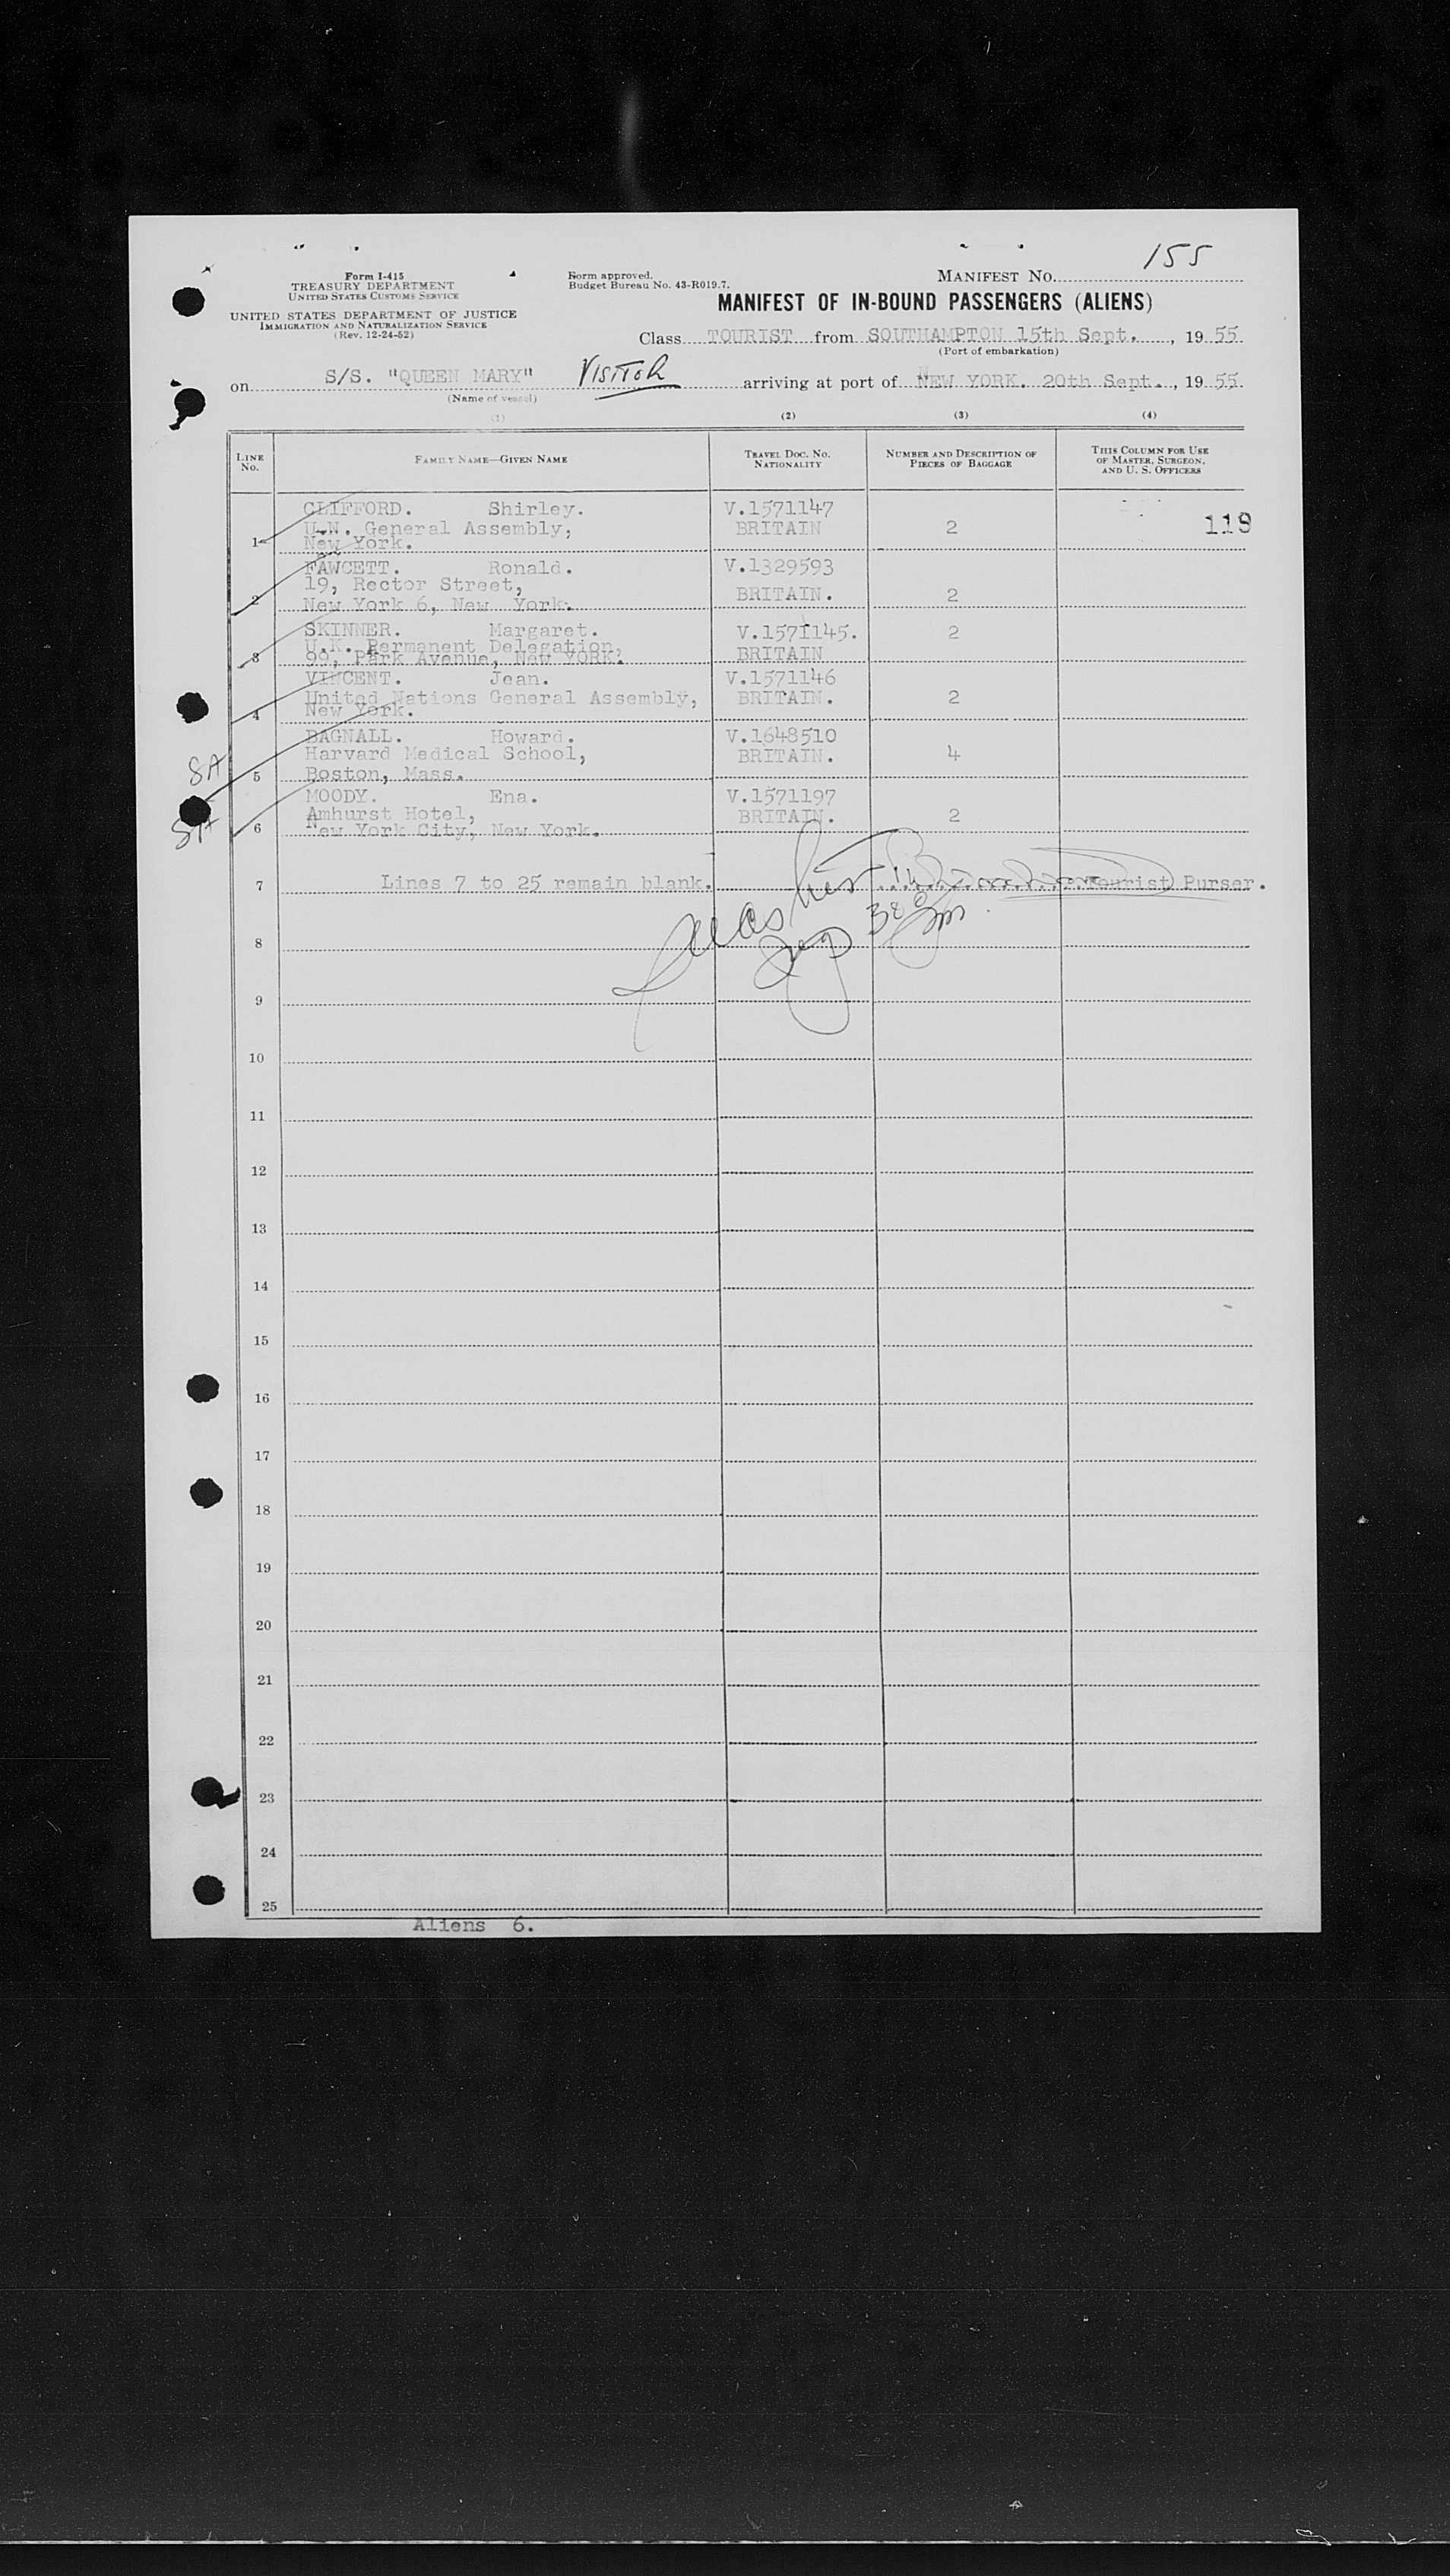 155
Form I-415
TREASURY DEPARTMENT
UNITED STATES CUSTOMS SERVICE
UNITED STATES DEPARTMENT OF JUSTICE
IMMIGRATION AND NATURALIZATION SERVICE
(Rev. 12-24-52)
Form approved.
Budget Bureau No. 43-R019.7.
MANIFEST NO.
MANIFEST OF IN-BOUND PASSENGERS (ALIENS)
Class TOURIST from SOUTHAMPTON 15th Sept. , 19 55
(Port of embarkation)
on S/S. "QUEEN MARY" VISITOR arriving at port of NEW YORK. 20th Sept. , 19 55.
(Name of vessel)
(1) (2) (3) (4)
LINE NO. FAMILY NAME—GIVEN NAME TRAVEL DOC. NO. NATIONALITY NUMBER AND DESCRIPTION OF PIECES OF BAGGAGE THIS COLUMN FOR USE OF MASTER, SURGEON, AND U. S. OFFICERS
CLIFFORD. Shirley. V.1571147
U.N. General Assembly, BRITAIN 2 119
1 New York.
FAWCETT. Ronald. V.1329593
19, Rector Street,
2 New York 6, New York. BRITAIN. 2
SKINNER. Margaret. V.1571145. 2
U.K. Permanent Delegation,
3 99, Park Avenue, New YORK. BRITAIN
VINCENT. Jean. V.1571146
United Nations General Assembly, BRITAIN. 2
4 New York.
BAGNALL. Howard. V.1648510
Harvard Medical School, BRITAIN. 4
SA 5 Boston, Mass.
MOODY. Ena. V.1571197
Amhurst Hotel, BRITAIN. 2
6 New York City, New York.
7 Lines 7 to 25 remain blank. Tourist Purser.
8
9
10
11
12
13
14
15
16
17
18
19
20
21
22
23
24
25
Aliens 6.